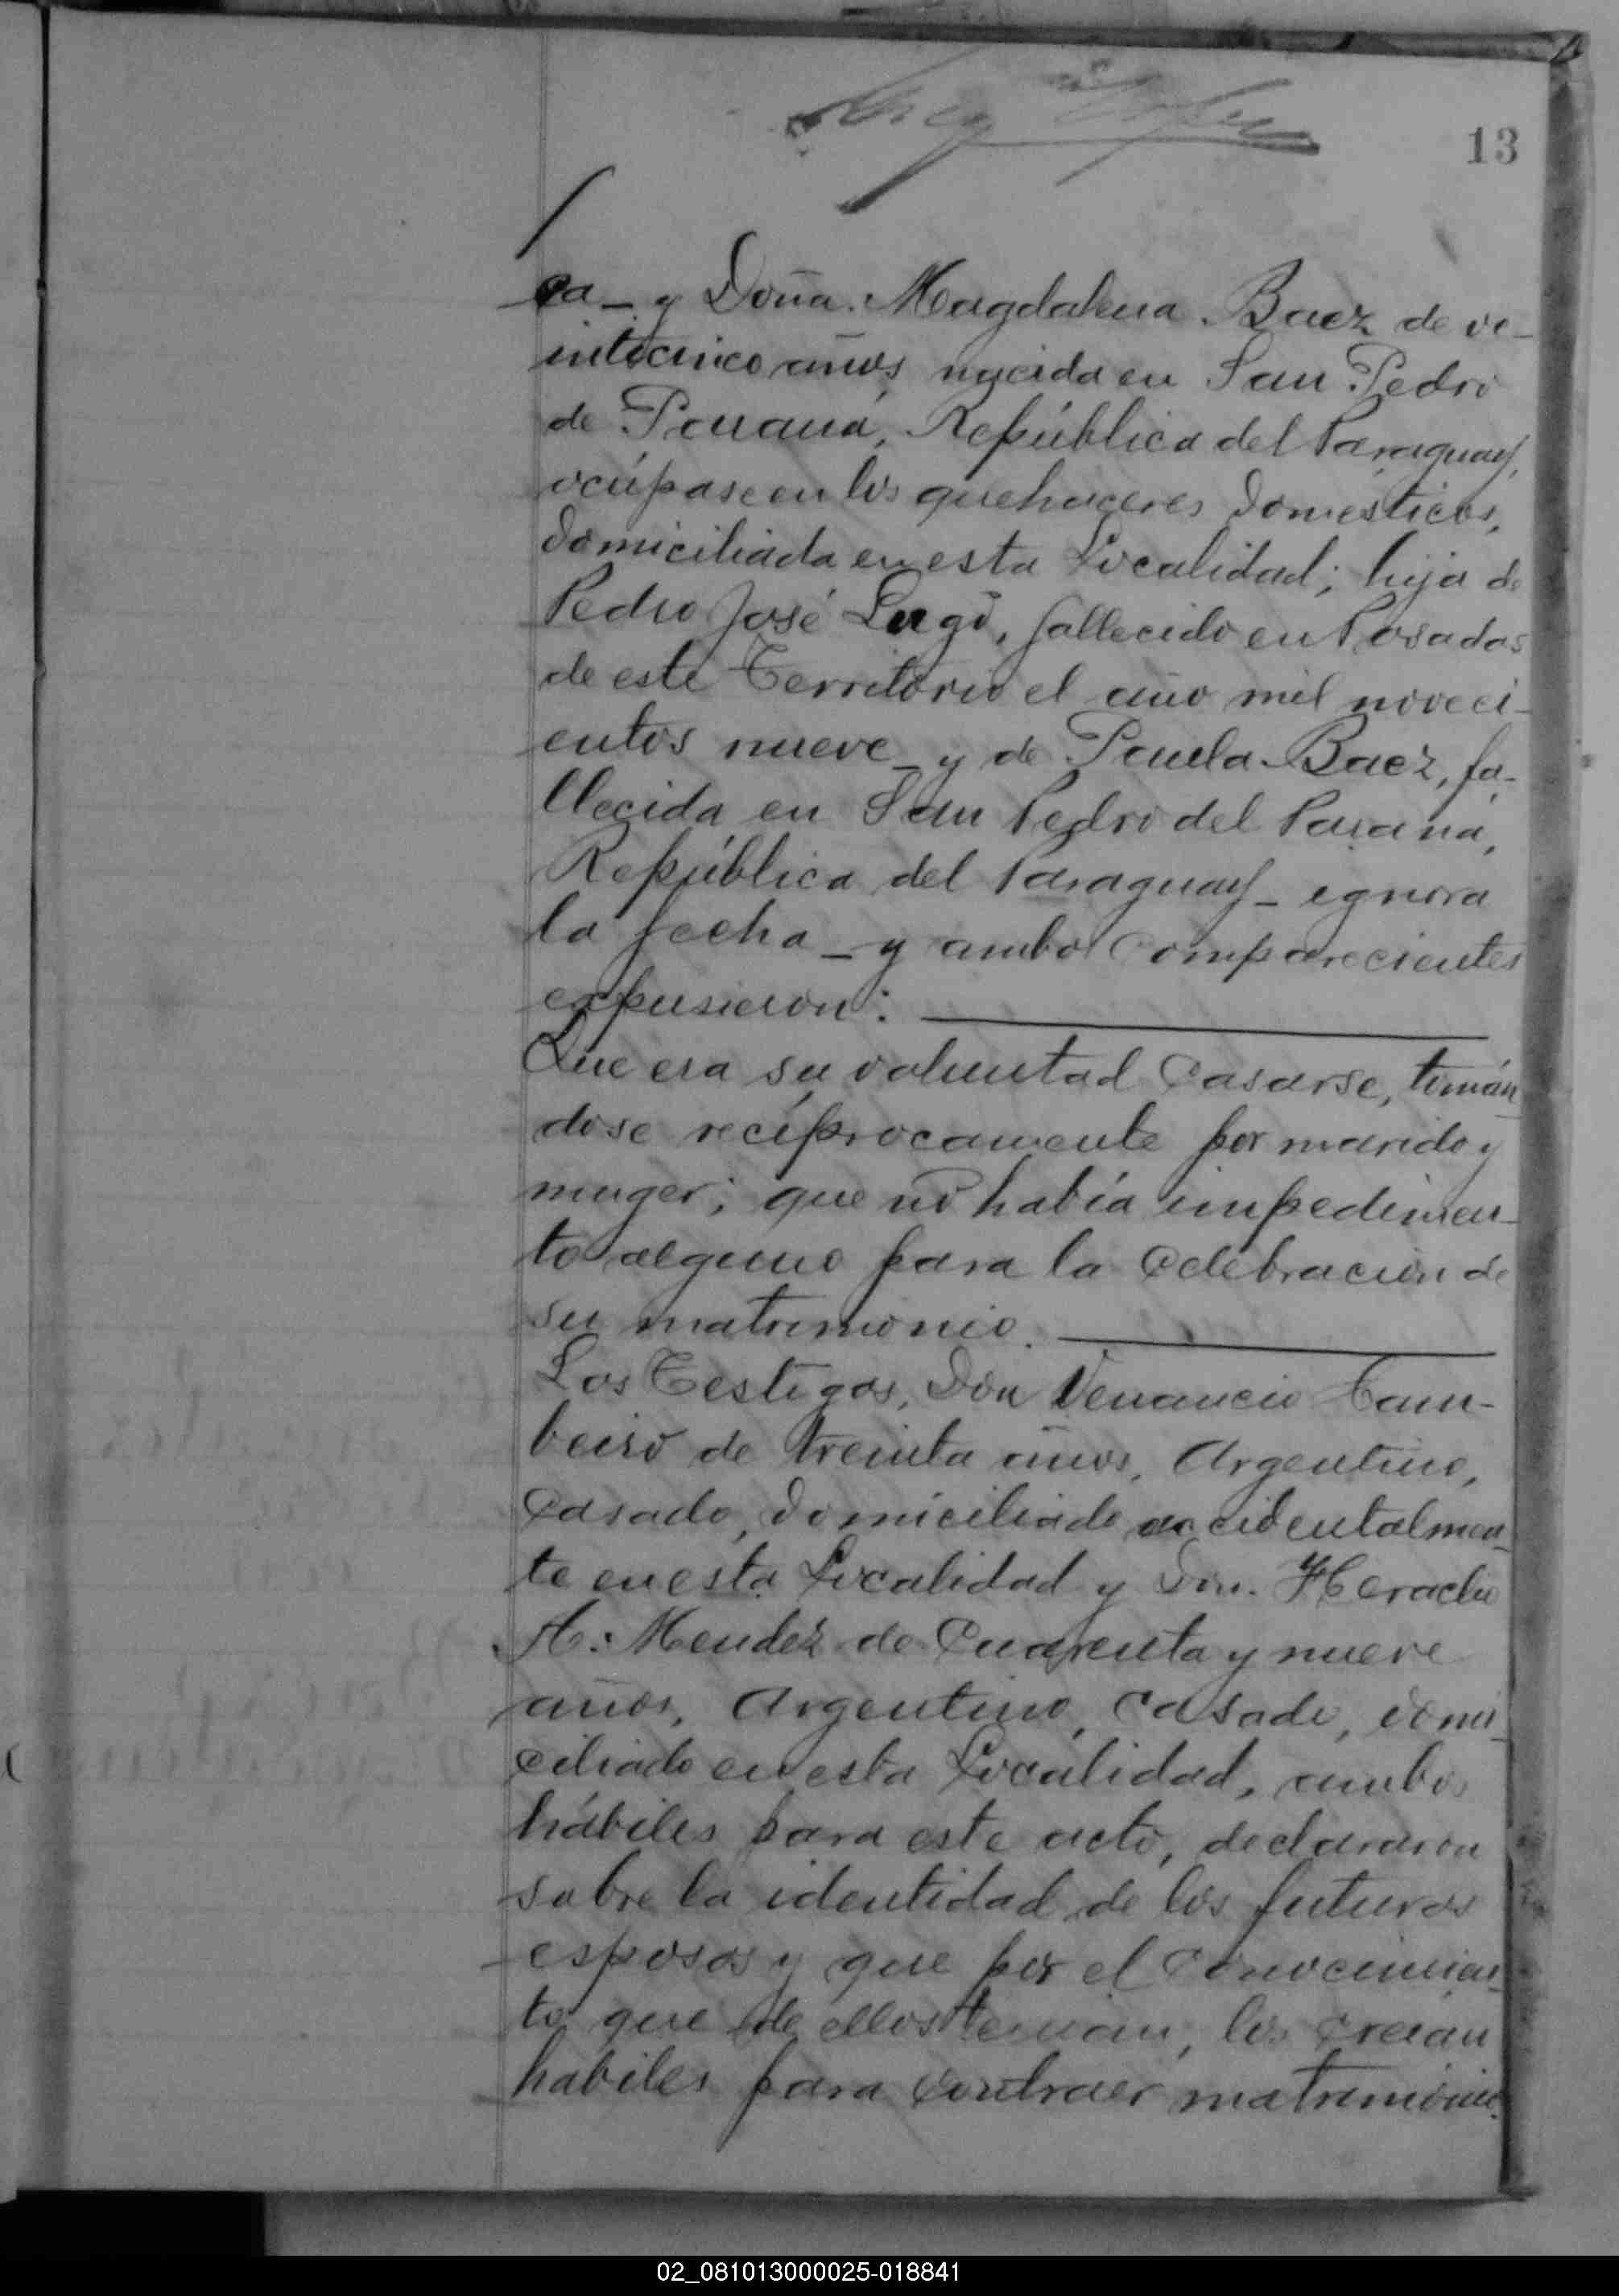 13
ca_ y Doña Magdalena Baez de ve-
inticinco años, nacida en San Pedro
de Paraná, República del Paraguay,
ocúpase en los quehaceres domésticos,
domiciliada en esta Localidad; hija de
Pedro José Lugo, fallecido en Posadas
de este Territorio el año mil noveci-
entos nueve_ y de Paula Baez, fa-
llecida en San Pedro del Paraná,
República del Paraguay_ ignora
la fecha_ y ambos Comparecientes
expusieron:
Que era su voluntad casarse, tomán-
dose recíprocamente por marido y
muger; que no había impedimen-
to alguno para la celebración de
su matrimonio.
Los Testigos, Don Venancio Cam-
beiro de treinta años, Argentino,
Casado, domiciliado accidentalmen-
te en esta Localidad y Don Heraclio
A. Mendez de cuarenta y nueve
años, Argentino, casado, domi-
ciliado en esta Localidad, ambos
hábiles para este acto, declararon
sobre la identidad de los futuros
esposos y que por el conocimien-
to que de ellos tenian, los creian
habiles para contraer matrimonio.
02_081013000025-018841